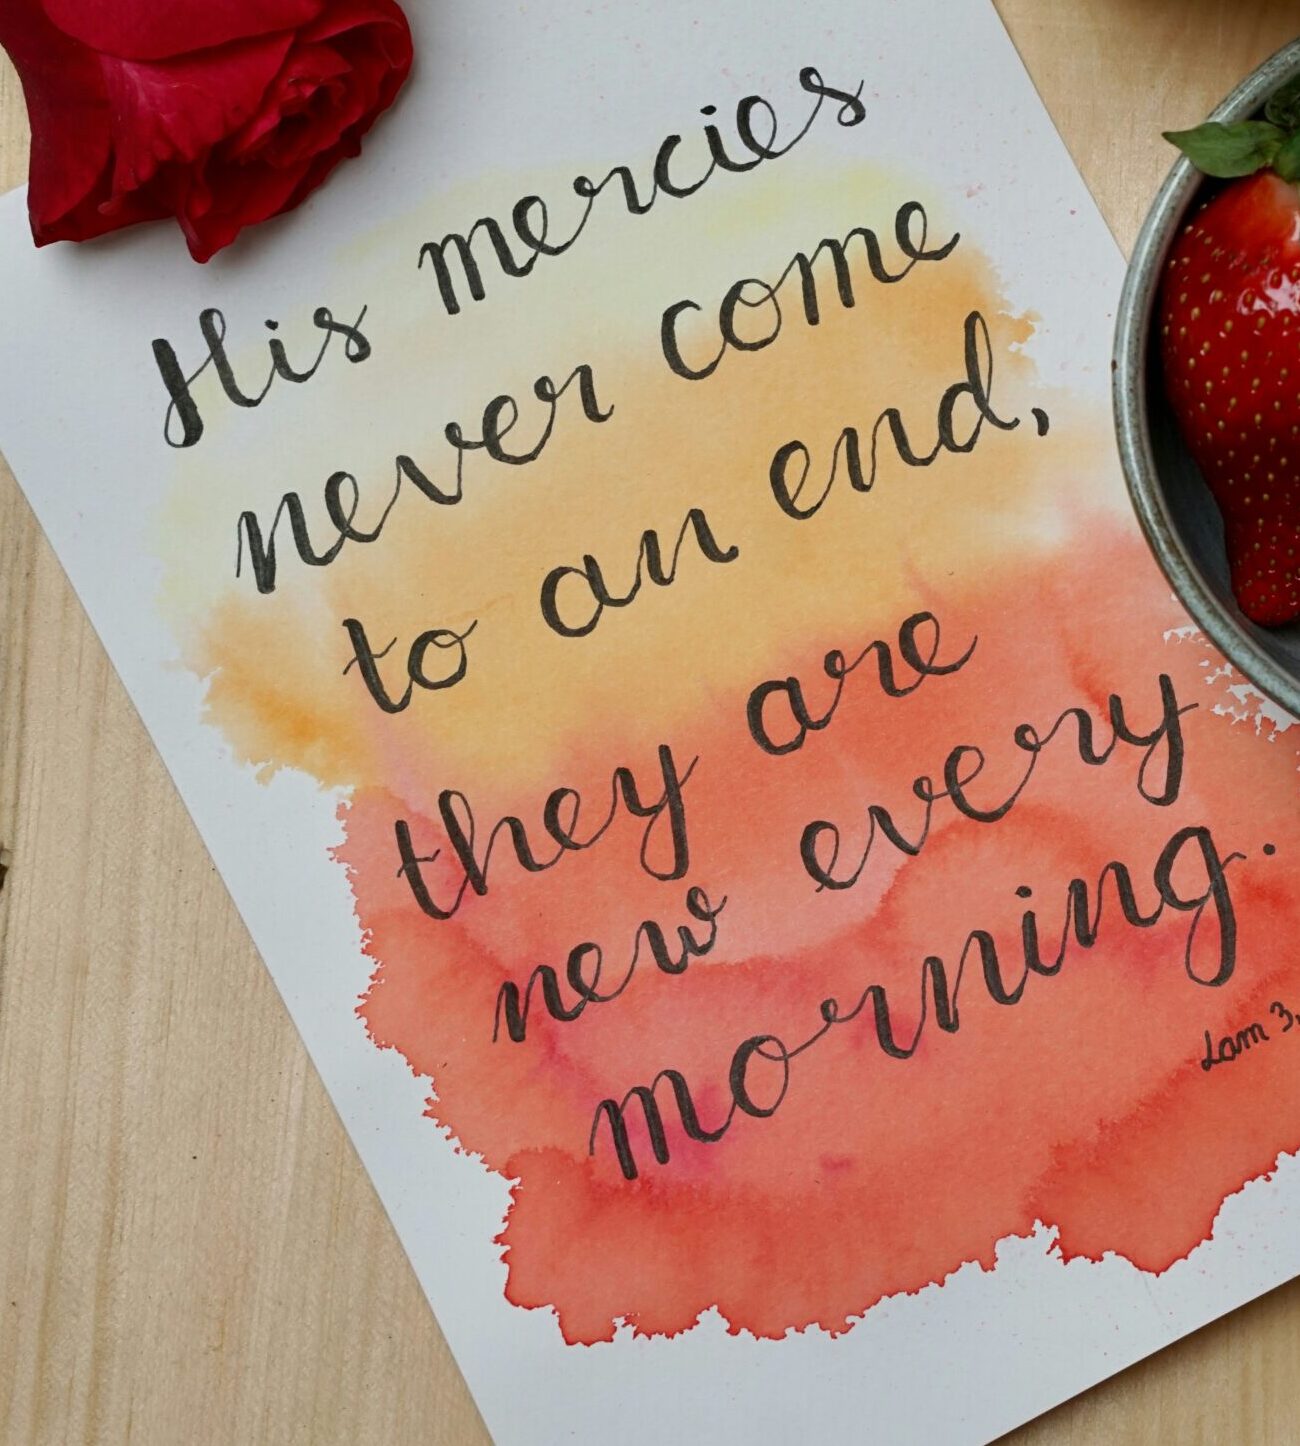 His mercies
never come
to an end,
they are
new every
morning.
Lam 3,